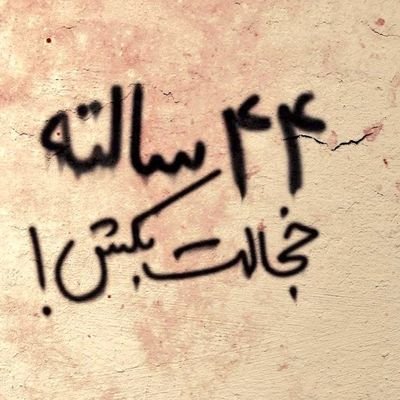 ۴۴ سالته
خجالت بکش!